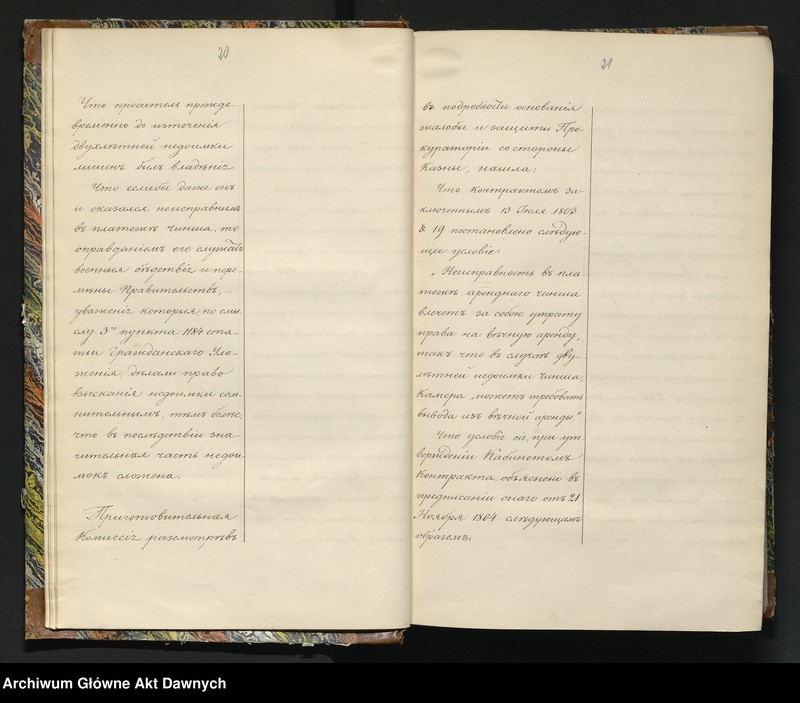 20
Что проситель прежде-
временно до истеченія
двухлѣтней недоимки
лишенъ былъ владѣнія.
Что еслибы даже онъ
и оказался неисправнымъ
въ платежѣ чинша, то
оправданіемъ его служатъ
военныя бѣдствія и пере-
мѣны Правительствъ, -
уваженія которыя по смы-
слу 3го пункта 1184 ста-
тьи Гражданскаго Уло-
женія, дѣлали право
взысканія недоимки сом-
нительнымъ, тѣмъ болѣе,
что въ послѣдствіи зна-
чительная часть недои-
мокъ сложена.
Приготовительная
Комиссія разсмотрѣвъ
21
въ подробности основанія
жалобы и защиты Про-
кураторіи со стороны
Казны, нашла:
Что контрактомъ за-
ключеннымъ 13 Іюля 1803
§ 19 постановлено слѣдую-
щее условіе:
„Неисправность въ пла-
тежѣ арендного чинша
влечетъ за собою утрату
права на вѣчную аренду,
такъ что въ случаѣ дву-
лѣтней недоимки чинша,
Камера можетъ требовать
вывода изъ вѣчной аренды."
Что условіе сіе, при ут-
вержденіи Кабинетомъ
Контракта, объяснено въ
предписаніи онаго отъ 21
Ноября 1804 слѣдующимъ
образомъ:
Archiwum Główne Akt Dawnych